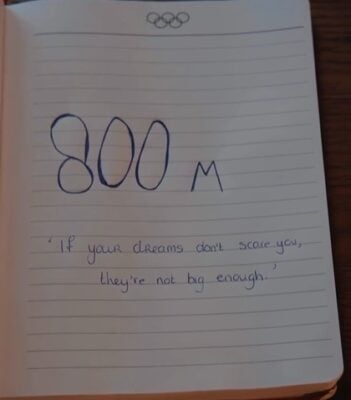 800 M
'If your dreams don't scare you,
they're not big enough.'